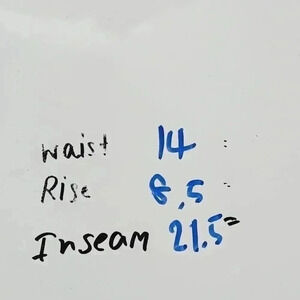 waist 14 :
Rise 8.5 :
Inseam 21.5"